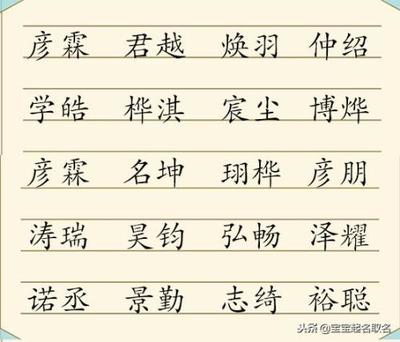 彦霖 君越 焕羽 仲绍
学皓 桦淇 宸尘 博烨
彦霖 名坤 珝桦 彦朋
涛瑞 昊钧 弘畅 泽耀
诺丞 景勤 志绮 裕聪
头条 @宝宝起名取名